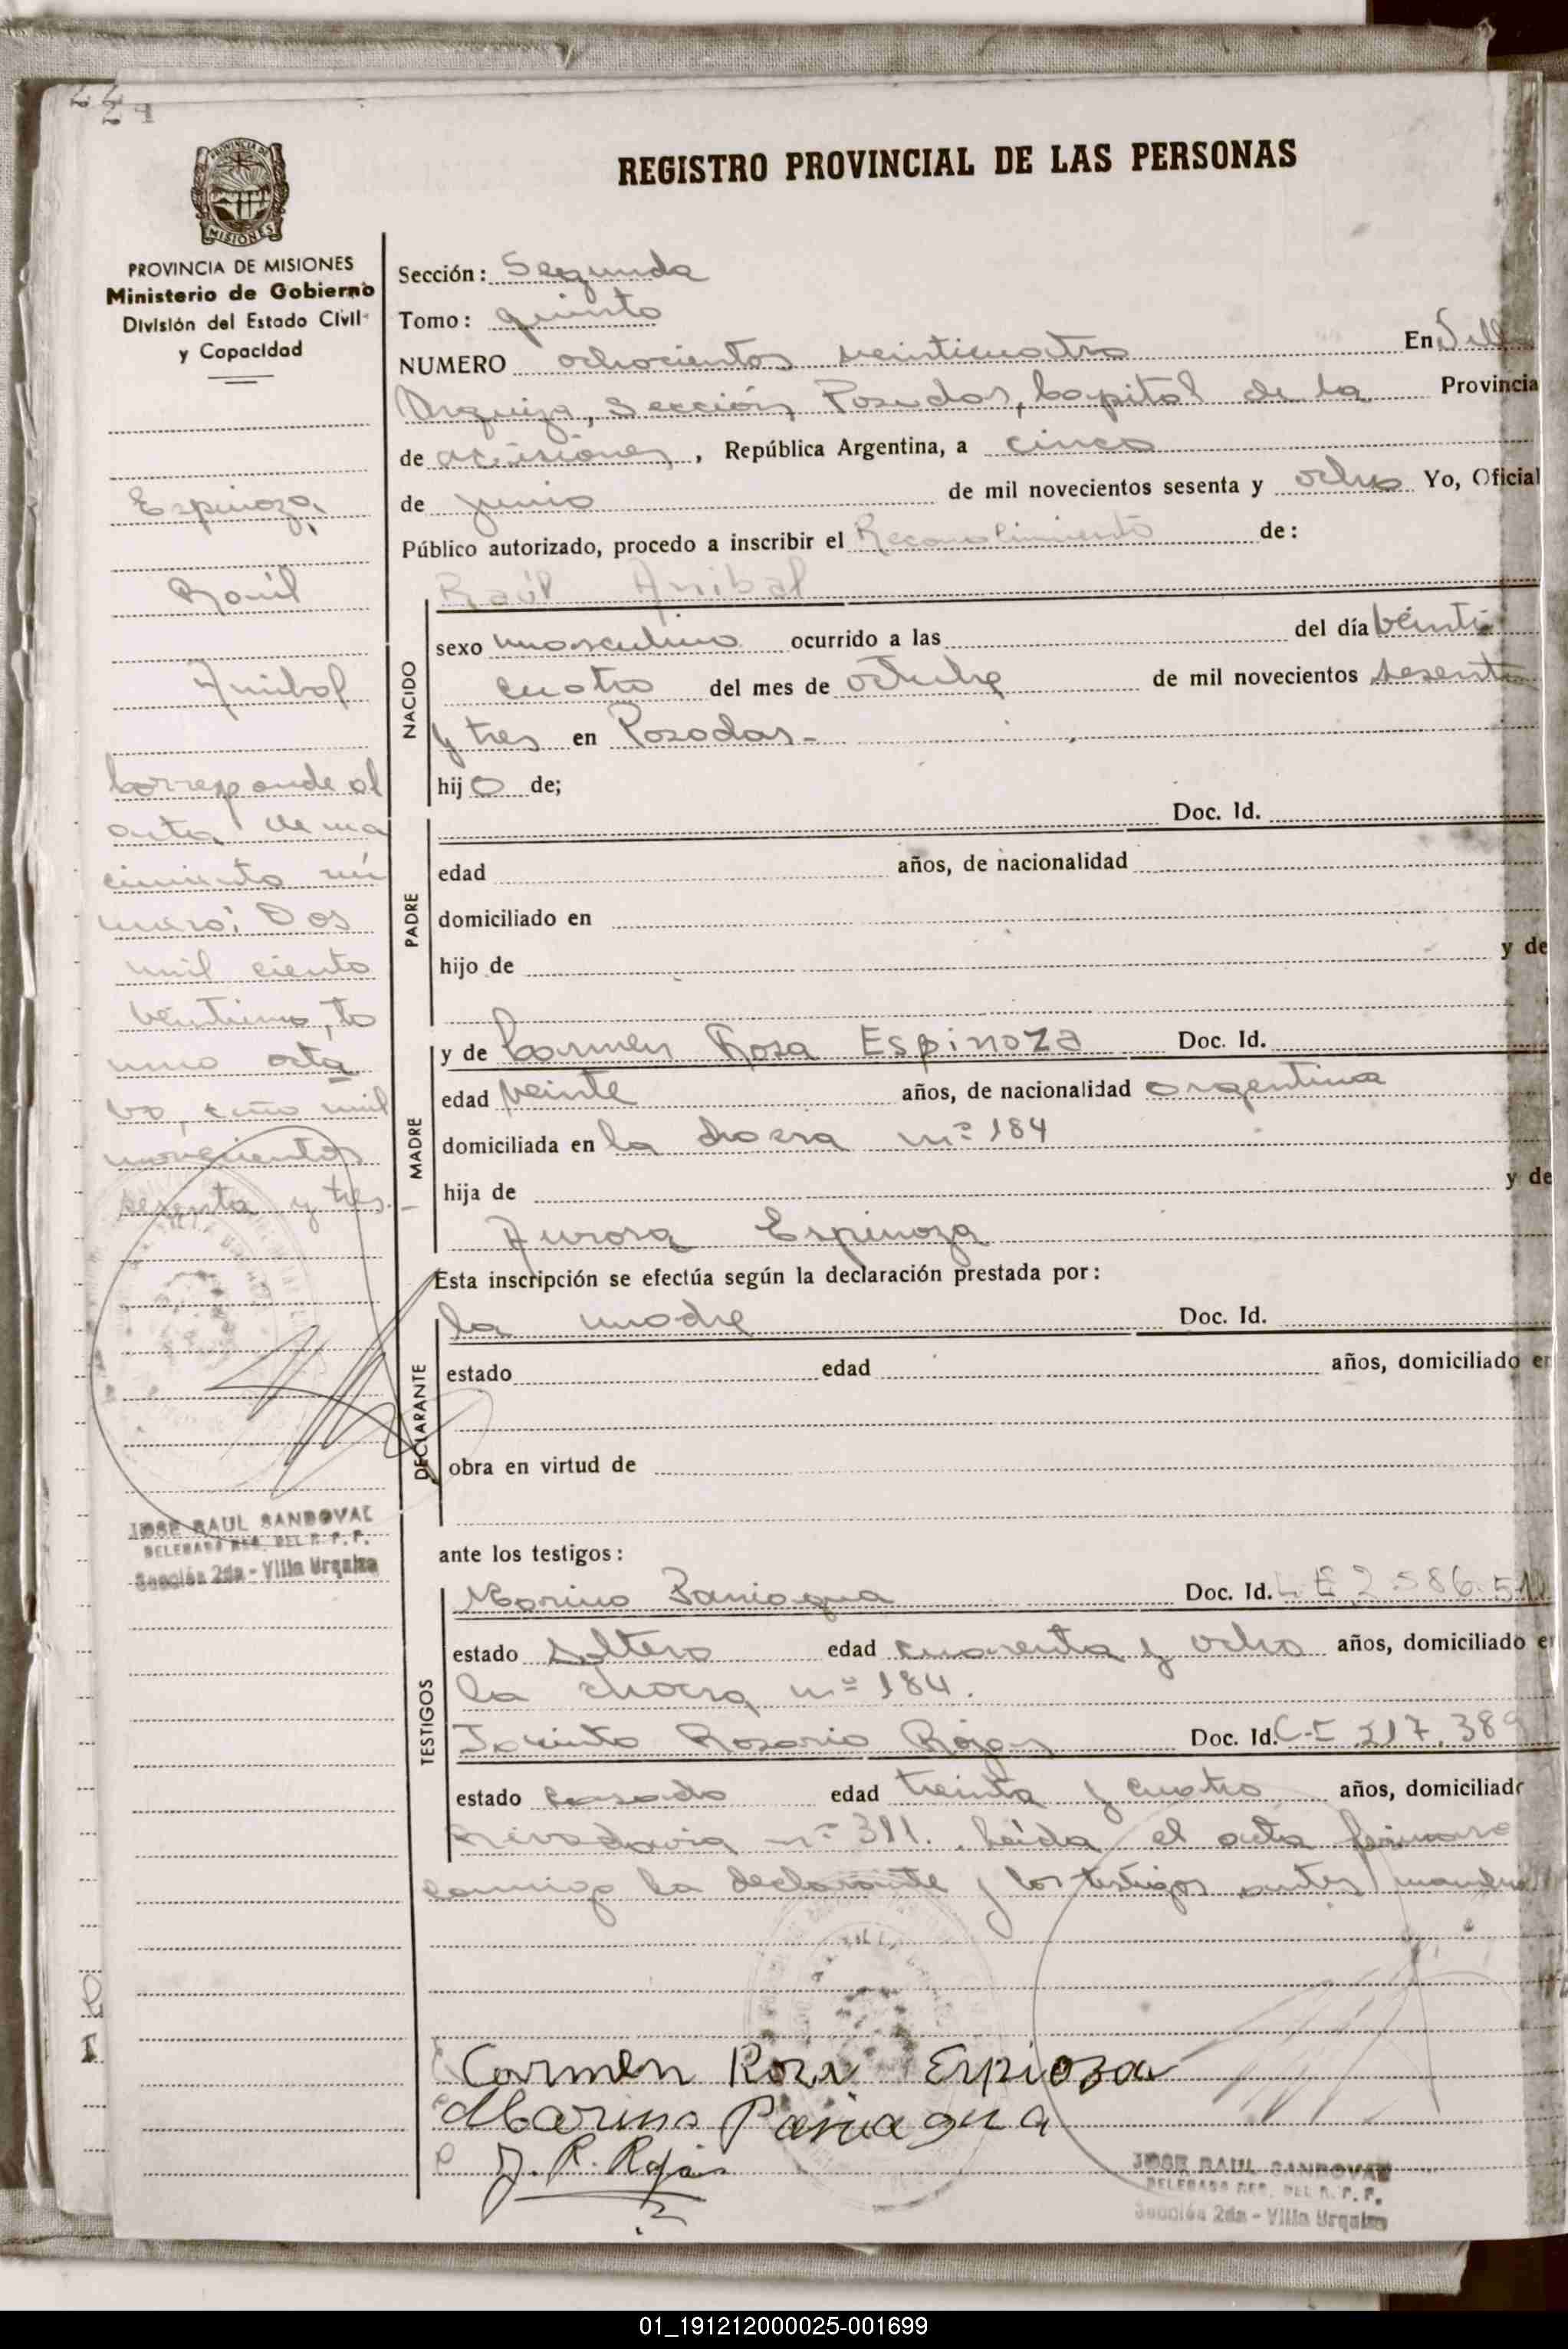 24
REGISTRO PROVINCIAL DE LAS PERSONAS
PROVINCIA DE MISIONES
Ministerio de Gobierno
División del Estado Civil
y Capacidad
Espinoza,
Raúl
Anibal
Corresponde al
acta de na
cimiento nú
mero: Dos
mil ciento
veintiuno, to
mo octa
vo, año mil
novecientos
sesenta y tres.
JOSE RAUL SANDOVAL
DELEGADO REG. DEL R. P. P.
Sección 2da - Villa Urquiza
Sección: Segunda
Tomo: quinto
NUMERO ochocientos veinticuatro En Villa
Urquiza, Sección, Posadas, Capital de la Provincia
de Misiones, República Argentina, a cinco
de junio de mil novecientos sesenta y ocho Yo, Oficial
Público autorizado, procedo a inscribir el Reconocimiento de:
Raúl Anibal
NACIDO
sexo masculino ocurrido a las del día veinti
cuatro del mes de octubre de mil novecientos sesenta
y tres en Posadas.-
hijo de;
PADRE
Doc. Id.
edad años, de nacionalidad
domiciliado en
hijo de y de
MADRE
y de Carmen Rosa Espinoza Doc. Id.
edad veinte años, de nacionalidad argentina
domiciliada en la chacra nº 184
hija de y de
Aurora Espinoza
Esta inscripción se efectúa según la declaración prestada por:
DECLARANTE
la madre Doc. Id.
estado edad años, domiciliado en
obra en virtud de
ante los testigos:
TESTIGOS
Marino Paniagua Doc. Id. L E 2.586.5
estado soltero edad cuarenta y ocho años, domiciliado en
la chacra nº 184.
Jacinto Rosario Rojas Doc. Id. C-I 217.389
estado casado edad treinta y cuatro años, domiciliado
Rivadavia nº 311. Leída el acta firmaron
conmigo la declarante y los testigos antes
Carmen Rosa Espioza
Marino Paniagua
J. R. Rojas
JOSE RAUL SANDOVAL
DELEGADO REG. DEL R. P. P.
Sección 2da - Villa Urquiza
01_191212000025-001699